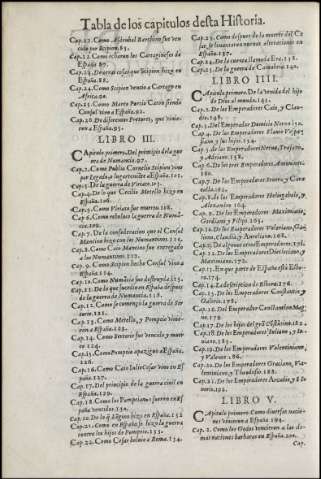 Tabla de los capitulos desta Historia.
Cap. 22. Como Asdrubal Barchino fue ven
cido por Scipion. 85.
Cap. 23. Como echaron los Cartagineses de
España. 87.
Cap. 23. De otras cosas que Scipion hizo en
España. 88.
Cap. 24. Como Scipion vencio a Cartago en
Africa. 90.
Cap. 25. Como Marco Porcio Caton siendo
Consul vino a España. 92.
Cap. 26. De diferentes Pretores, que vinie-
ron a España. 95.
LIBRO III.
Capitulo primero. Del principio de la gue
rra de Numancia. 97.
Cap. 2. Como Publio Cornelio Scipion vino
por Legado a España. 101.
Cap. 3. De la guerra de Viriato. 103.
Cap. 4. De lo que Cecilio Metello hizo en
España. 106.
Cap. 5. Como Viriato fue muerto. 108.
Cap. 6. Como rebolvio la guerra de Numã-
cia. 109.
Cap. 7. De la consideracion que el Consul
Mancino hizo con los Numantinos. 112.
Cap. 8. Como Caio Mancino fue entregado
a los Numantinos. 113.
Cap. 9. Como Scipion hecho Consul vino a
España. 114.
Cap. 10. Como Numãcia fue destruyda. 115.
Cap. 11. De lo que sucedio en España despues
de la guerra de Numancia. 118.
Cap. 12. Como se començo la guerra de Ser
torio. 121.
Cap. 13. Como Metello, y Pompeio vinie-
ron a España. 123.
Cap. 14. Como Sertorio fue vencido, y muer
to. 124.
Cap. 15. Como Pompeio apaziguo a España.
126.
Cap. 16. Como Caio Iulio Cesar vino en Es
paña. 127.
Cap. 17. Del principio de la guerra civil en
España. 129.
Cap. 18. Como los Pompeianos fueron en Es
paña vencidos. 130.
Cap. 20. De lo q̃ Lõgino hizo en España. 132
Cap. 21. Como en España se hizo la guerra
contra los hijos de Pompeio. 133.
Cap. 22. Como Cesar bolvio a Roma. 134.
Cap. 23. Como despues de la muerte del Ce
sar, se levantaron nuevas alteraciones en
España. 137.
Cap. 24. De la cuenta llamada Era. 138.
Cap. 25. De la guerra de Cantabria. 140.
LIBRO IIII.
Capitulo primero. De la venida del hijo
de Dios al mundo. 145.
Cap. 2. De los Emperadores Caio, y Clau-
dio. 148.
Cap. 3. Del Emperador Domicio Nero. 150.
Cap. 4. De los Emperadores Flavio Vespas
siano y sus hijos. 154.
Cap. 5. de los Emperadores Nerva, Trajano,
y Adriano. 158.
Cap. 6. De los tres Emperadores Antoninos.
160.
Cap. 7. De los Emperadores Severo, y Cara
calla. 162.
Cap. 8. de los Emperadores Heliogabalo, y
Alexandro. 164.
Cap. 9. De los Emperadores Maximino,
Gordiano y Filipo. 165.
Cap. 10. De los Emperadores Valeriano, Ga
lieno, Claudio, y Aureliano. 168.
Cap. 11. De algunos otros Emperadores. 170.
Cap. 12. De los Emperadores Diocleciano, y
Maximiano. 172.
Cap. 13. En que parte de España està Elbo-
ra. 174.
Cap. 14. La descripcion de Elbora. 176.
Cap. 15. De los Emperadores Constancio, y
Galerio. 178.
Cap. 16. Del Emperador Constantino Mag
no. 178.
Cap. 17. De los hijos del grã Cõstãtino. 182.
Cap. 18. De los Emperadores Iuliano, y Iovia-
no. 185.
Cap. 19. De los Emperadores Valentiniano,
y Valente. 186.
Cap. 20. De los Emperadores Graciano, Va-
lentiniano, y Theodosio. 188.
Cap. 21. De los Emperadores Arcadio, y Ho
norio. 192.
LIBRO V.
Capitulo primero. Como diversas nacio-
nes vinieron a España. 194.
Cap. 2. Como los Godos vinieron a las de-
mas naciones barbaras en España. 200.
Cap.